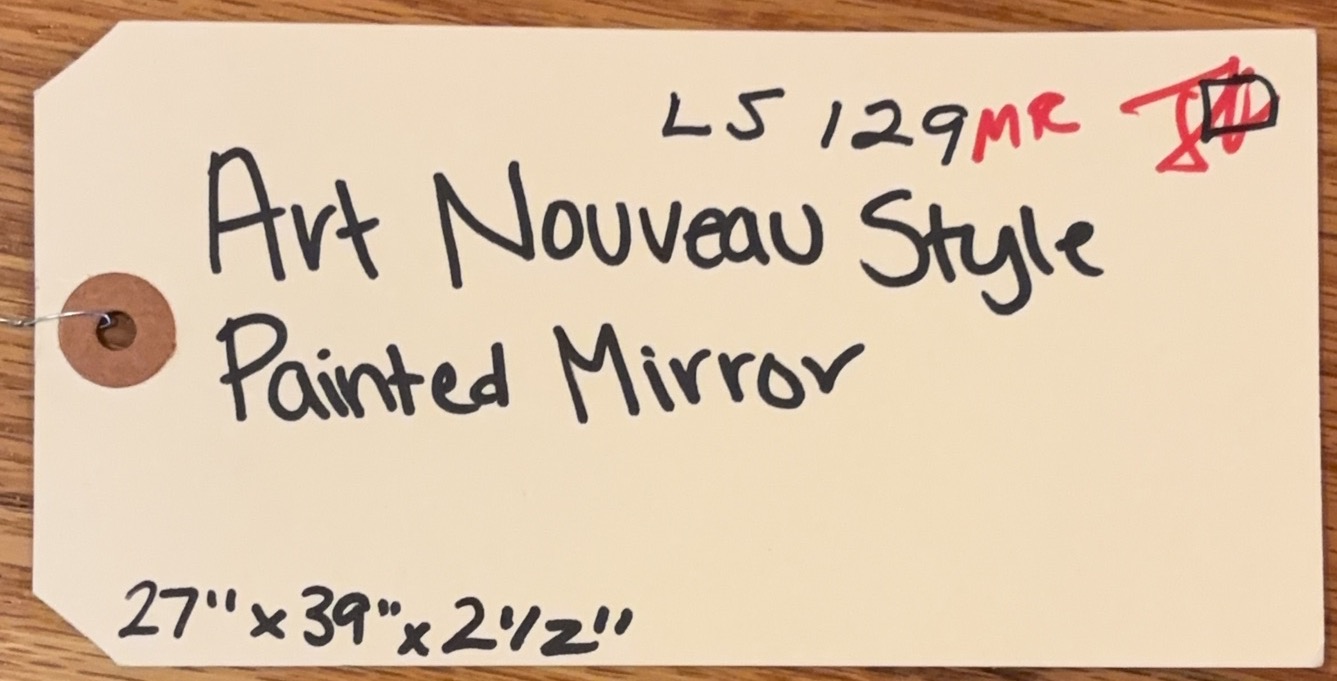 LS 129 MR
Art Nouveau Style
Painted Mirror
27" x 39" x 2 1/2"